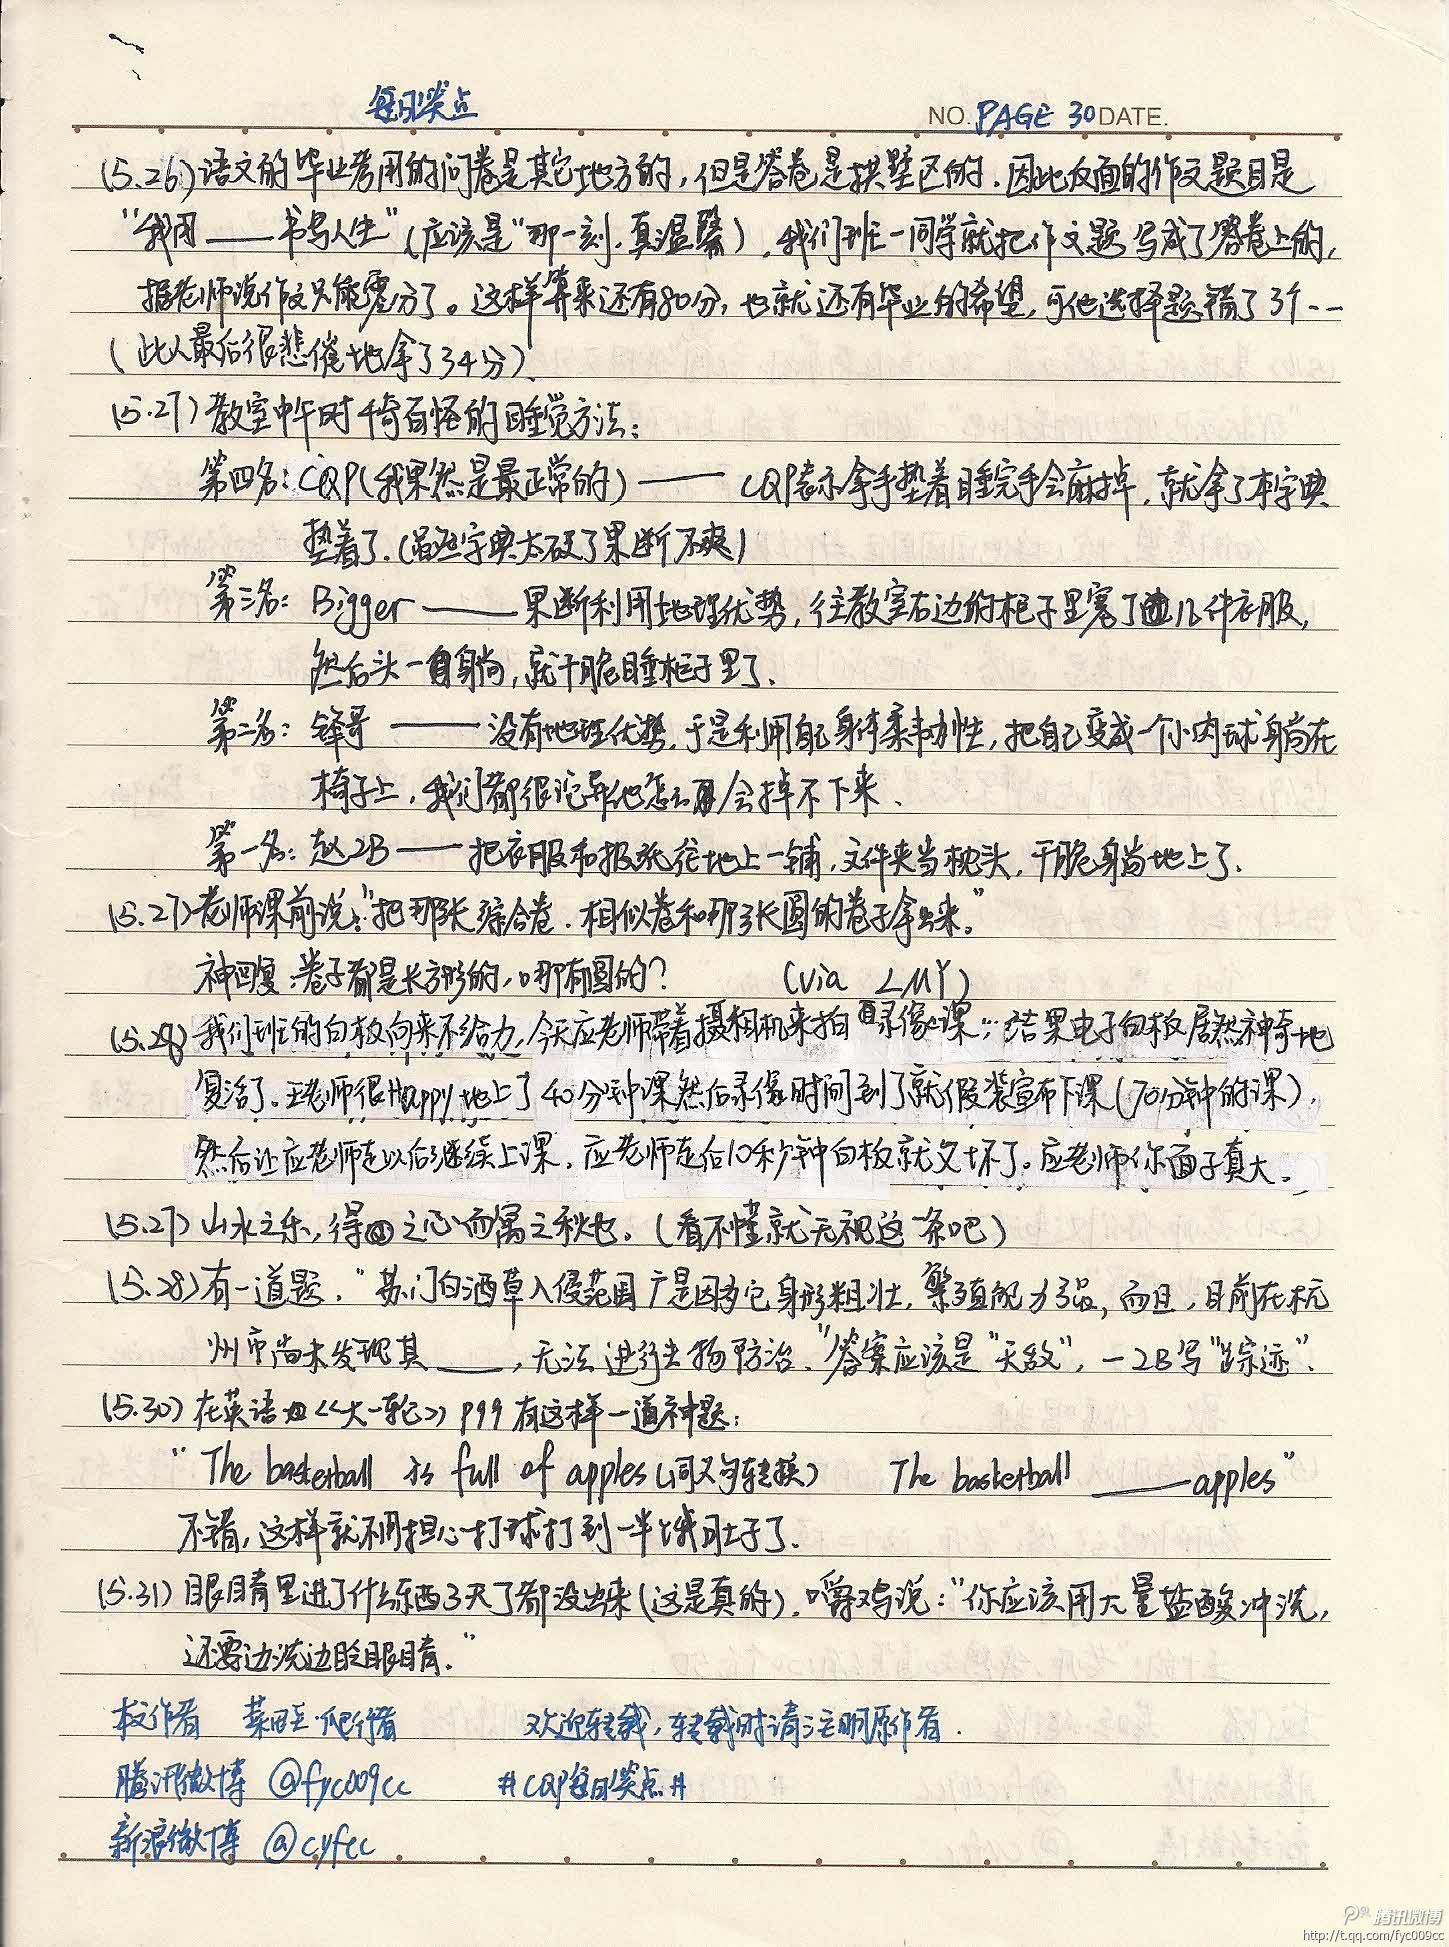 每日笑点
NO. PAGE 30 DATE.
(5.26) 语文的毕业考用的问卷是其它地方的,但是答卷是拱墅区的.因此反面的作文题目是
“我用——书写人生”(应该是“那一刻,真温馨).我们班一同学就把作文题写成了答卷上的,
据老师说作文只能零分了。这样算来还有80分,也就还有毕业的希望,可他选择题错了3个...
(此人最后很悲催地拿了34分)
(5.27) 教室中午时千奇百怪的睡觉方法:
第四名:CQP(我果然是最正常的)—— CQP表示拿手垫着睡完手会麻掉,就拿了本字典
垫着了.(虽然字典太硬了果断不爽)
第三名: Bigger —— 果断利用地理优势,往教室右边的柜子里塞了几件衣服,
然后头一躺,就干脆睡柜子里了.
第二名: 锋哥 —— 没有地理优势,于是利用自己身体柔韧性,把自己变成一个小肉球躺在
椅子上,我们都很诧异他怎么会掉不下来.
第一名: 赵2B —— 把衣服和报纸往地上一铺,文件夹当枕头,干脆躺地上了.
(5.27) 老师课前说:“把那张综合卷.相似卷和那张圆的卷子拿出来.”
神回复:卷子都是长方形的,哪有圆的? (via LMY)
(5.28) 我们班的白板向来不给力,今天应老师带着摄相机来拍录像课;结果电子白板居然神奇地
复活了.王老师很Happy地上了40分钟课然后录像时间到了就假装宣布下课(70分钟的课),
然后让应老师走以后继续上课.应老师走后10秒钟白板就又坏了.应老师你面子真大.
(5.27) 山水之乐,得之心而寓之秋也.(看不懂就无视这一条吧)
(5.28) 有一道题,“苏门白酒草入侵范围广是因为它身形粗壮,繁殖能力强,而且,目前在杭
州市尚未发现其——,无法进行生物防治.”答案应该是“天敌”,一2B写“踪迹”.
(5.30) 在英语《大一轮》P99有这样一道神题:
“The basketball is full of apples(同义句转换) The basketball ——apples”
不错,这样就不用担心打球打到一半饿肚子了.
(5.31) 眼睛里进了什么东西3天了都没出来(这是真的).嚼鸡说:“你应该用大量盐酸冲洗,
还要边洗边眨眼睛.”
本作者 菜园·爬行者 欢迎转载,转载时请注明原作者.
腾讯微博 @fyc009cc #CQP每日笑点#
新浪微博 @cyfcc
腾讯微博
http://t.qq.com/fyc009cc